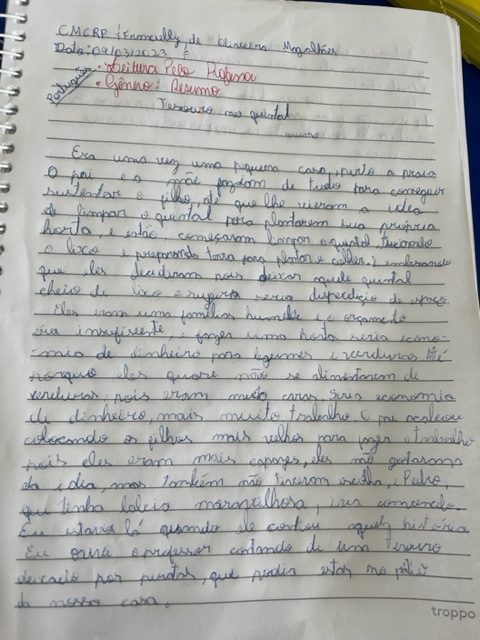 CMCRP Emanuelly de Oliveira Magalhães
Data: 09/03/2023
Português
• Leitura Pelo Professor
• Gênero: Resumo
Tesouro no quintal
Era uma vez uma pequena casa, perto a praia
O pai e a mãe faziam de tudo para conseguir
sustentar o filho, até que lhe vieram a ideia
de limpar o quintal para plantarem sua própria
horta e então, começaram limpar o quintal tirando
o lixo e preparando terra para plantar e colher,
que eles decidiram pois deixar aquele quintal
cheio de lixo e sujeira seria desperdício de espaço.
Eles eram uma famílias humilde e o orçamento
era insufisente, e fazer uma horta seria econo-
-mia de dinheiro para legumes e verduras. Até
porque eles quase não se alimentarem de
verduras, pois eram muito caras. Seria economia
de dinheiro, mais muito trabalho. O pai acabou
colocando os filhos mais velhos para fazer o trabalho
pois eles eram mais capazes, eles não gostaram
da ideia, mas também não tiveram escolha, e Pedro,
que tinha lábia maravilhosa, ia
Eu estava lá quando ele contou aquela história
Eu ouvi o professor contando de um tesouro
deixado por piratas, que podia estar no pátio
da nossa casa.
troppo